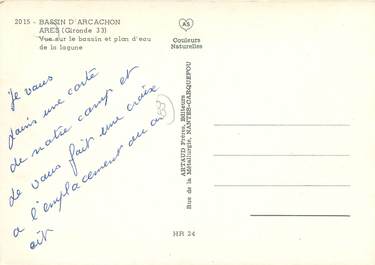 2015 - BASSIN D'ARCACHON
ARES (Gironde 33)
Vue sur le bassin et plan d'eau
de la lagune
AS
Couleurs
Naturelles
Je vous
joins une carte
de notre camp et
Je vous fait une croix
a l'emplacement ou on
est
33
ARTAUD Frères, Éditeurs
Rue de la Métallurgie, NANTES-CARQUEFOU
HR 24